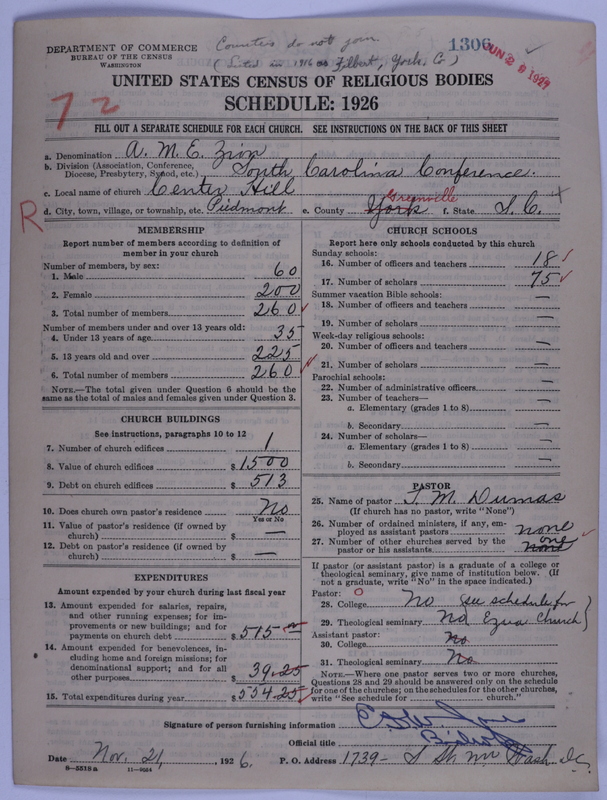 DEPARTMENT OF COMMERCE
BUREAU OF THE CENSUS
WASHINGTON
Counties do not join
(Listed in 1916 as Filbert, York, Co)
1306
JUN 28 1927
UNITED STATES CENSUS OF RELIGIOUS BODIES
SCHEDULE: 1926
72
FILL OUT A SEPARATE SCHEDULE FOR EACH CHURCH. SEE INSTRUCTIONS ON THE BACK OF THIS SHEET
a. Denomination A. M. E. Zion
b. Division (Association, Conference, Diocese, Presbytery, Synod, etc.) South Carolina Conference.
c. Local name of church Center Hill
d. City, town, village, or township, etc. Piedmont e. County York Greenville f. State S. C.
R
MEMBERSHIP
Report number of members according to definition of
member in your church
Number of members, by sex:
1. Male 60
2. Female 200
3. Total number of members 260
Number of members under and over 13 years old:
4. Under 13 years of age 35
5. 13 years old and over 225
6. Total number of members 260
NOTE.—The total given under Question 6 should be the
same as the total of males and females given under Question 3.
CHURCH BUILDINGS
See instructions, paragraphs 10 to 12
7. Number of church edifices 1
8. Value of church edifices $1500
9. Debt on church edifices $513
10. Does church own pastor's residence No
Yes or No
11. Value of pastor's residence (if owned by
church) $ —
12. Debt on pastor's residence (if owned by
church) $ —
EXPENDITURES
Amount expended by your church during last fiscal year
13. Amount expended for salaries, repairs,
and other running expenses; for im-
provements or new buildings; and for
payments on church debt $515
14. Amount expended for benevolences, in-
cluding home and foreign missions; for
denominational support; and for all
other purposes 39.25
15. Total expenditures during year $554.25
CHURCH SCHOOLS
Report here only schools conducted by this church
Sunday schools:
16. Number of officers and teachers 18
17. Number of scholars 75
Summer vacation Bible schools:
18. Number of officers and teachers —
19. Number of scholars —
Week-day religious schools:
20. Number of officers and teachers —
21. Number of scholars —
Parochial schools:
22. Number of administrative officers —
23. Number of teachers—
a. Elementary (grades 1 to 8) —
b. Secondary —
24. Number of scholars—
a. Elementary (grades 1 to 8) —
b. Secondary —
PASTOR
25. Name of pastor T. M. Dumas
(If church has no pastor, write "None")
26. Number of ordained ministers, if any, em-
ployed as assistant pastors none
27. Number of other churches served by the
pastor or his assistants one none
If pastor (or assistant pastor) is a graduate of a college or
theological seminary, give name of institution below. (If
not a graduate, write "No" in the space indicated.)
Pastor: O
28. College No (see schedule for
29. Theological seminary No Ezra Church)
Assistant pastor:
30. College No
31. Theological seminary No
NOTE.—Where one pastor serves two or more churches,
Questions 28 and 29 should be answered only on the schedule
for one of the churches; on the schedules for the other churches,
write "See schedule for church."
Signature of person furnishing information
Official title Bishop
Date Nov. 21, 1926. P. O. Address 1739- S St NW Wash D.C.
8-5518a 11-9584